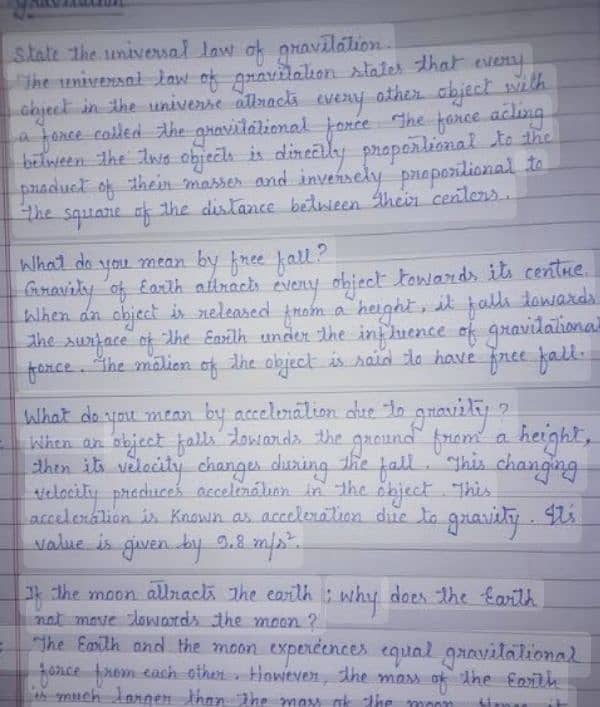 Gravitation
State the universal law of gravitation.
The universal law of gravitation states that every
object in the universe attracts every other object with
a force called the gravitational force. The force acting
between the two objects is directly proportional to the
product of their masses and inversely proportional to
the square of the distance between their centers.
What do you mean by free fall?
Gravity of Earth attracts every object towards its centre.
When an object is released from a height, it falls towards
the surface of the Earth under the influence of gravitational
force. The motion of the object is said to have free fall.
What do you mean by acceleration due to gravity?
When an object falls towards the ground from a height,
then its velocity changes during the fall. This changing
velocity produces acceleration in the object. This
acceleration is known as acceleration due to gravity. Its
value is given by 9.8 m/s².
If the moon attracts the earth; why does the Earth
not move towards the moon?
The Earth and the moon experiences equal gravitational
force from each other. However, the mass of the Earth
is much larger than the mass of the moon. Hence it